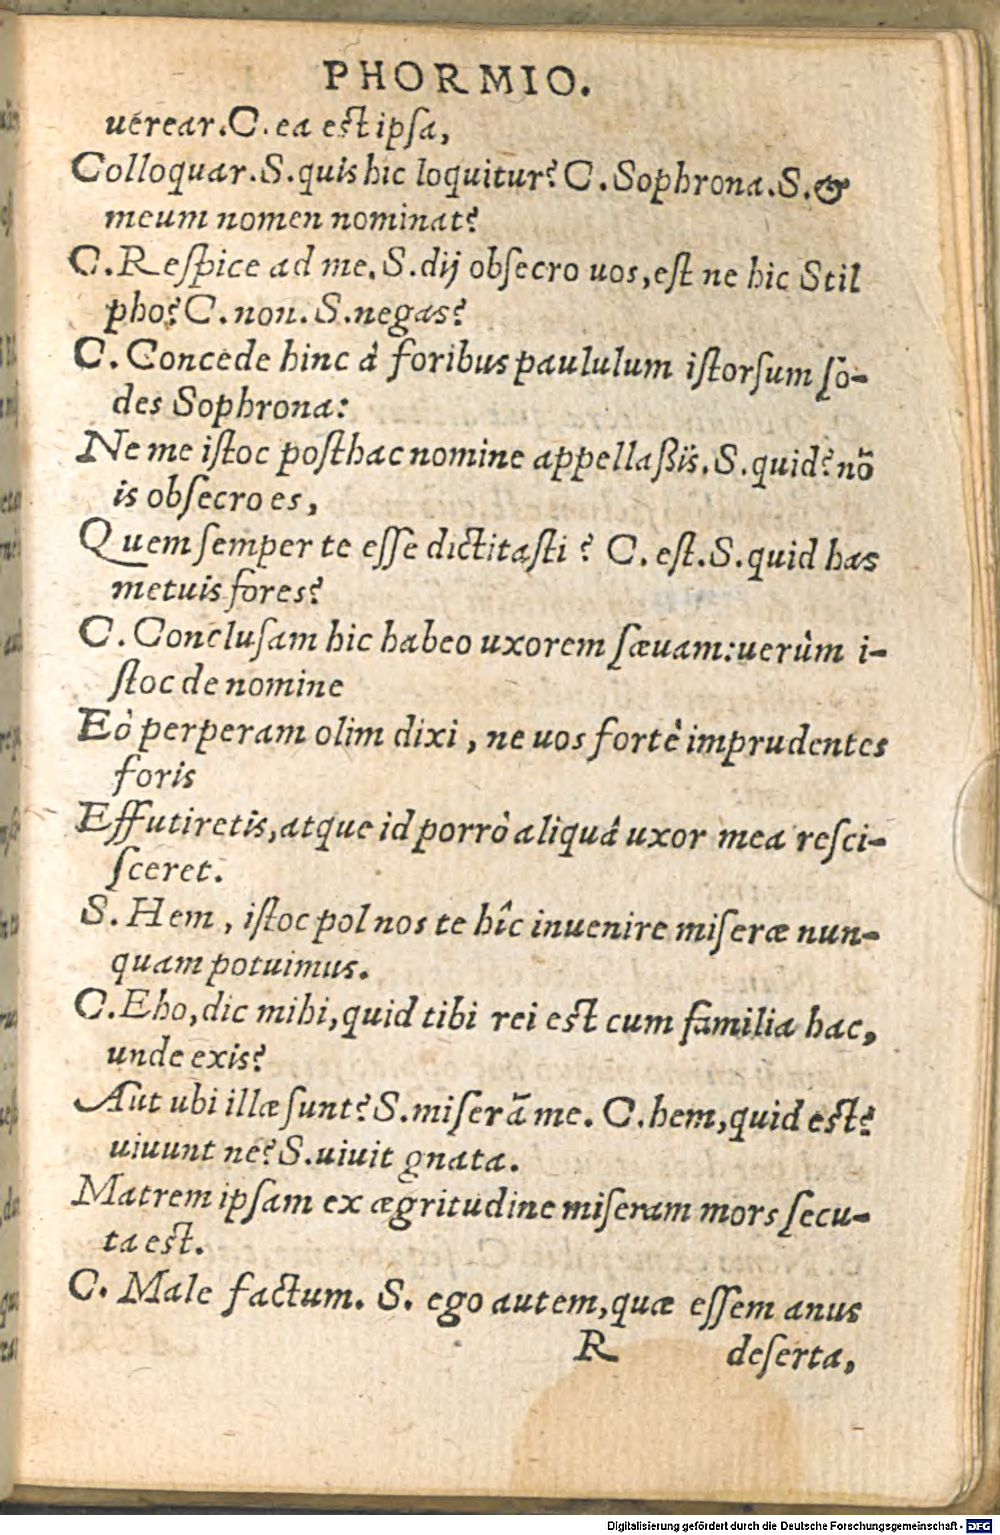 PHORMIO.
uerear. C. ea est ipsa,
Colloquar. S. quis hic loquitur? C. Sophrona. S. &
meum nomen nominat?
C. Respice ad me. S. dij obsecro uos, est ne hic Stil
pho? C. non. S. negas?
C. Concede hinc â foribus paululum istorsum so-
des Sophrona:
Ne me istoc posthac nomine appellaßis. S. quid? nõ
is obsecro es,
Quem semper te esse dictitasti? C. est. S. quid has
metuis fores?
C. Conclusam hic habeo uxorem sæuam: uerùm i-
stoc de nomine
Eò perperam olim dixi, ne uos fortè imprudentes
foris
Effutiretis, atque id porrò aliquâ uxor mea resci-
sceret.
S. Hem, istoc pol nos te hîc inuenire miseræ nun-
quam potuimus.
C. Eho, dic mihi, quid tibi rei est cum familia hac,
unde exis?
Aut ubi illæ sunt? S. miserã me. C. hem, quid est?
uiuunt ne? S. uiuit gnata.
Matrem ipsam ex ægritudine miseram mors secu-
ta est.
C. Male factum. S. ego autem, quæ essem anus
R deserta,
Digitalisierung gefördert durch die Deutsche Forschungsgemeinschaft - DFG